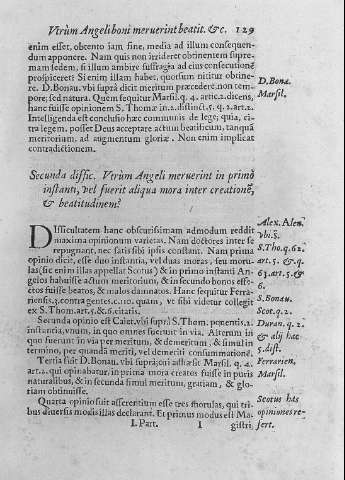 Vtrùm Angeli boni meruerint beatit. &c. 129
enim esset, obtento iam fine, media ad illum consequen-
dum apponere. Nam quis non irrideret obtinentem supre-
mam sedem, si illum ambire suffragia ad eius consecutionē
prospiceret? Si enim illam habet, quorsum nititur obtine-
re. D. Bonau. vbi suprà dicit meritum præcedere non tem-
pore, sed natura. Quem sequitur Marsil. q. 4. artic. 2. dicens,
hanc fuisse opinionem S. Thomæ in 2. distinct. 5. q. 2. art. 2.
Intelligenda est conclusio hæc communis de lege; quia, ci-
tra legem, posset Deus acceptare actum beatificum, tanquā
meritorium, ad augmentum gloriæ. Non enim implicat
contradictionem.
D. Bona.
Marsil.
Secunda diffic. Vtrùm Angeli meruerint in primo
instanti, vel fuerit aliqua mora inter creationē,
& beatitudinem?
Difficultatem hanc obscurissimam admodum reddit
maxima opinionum varietas. Nam doctores inter se
repugnant, nec satis sibi ipsis constant. Nam prima
opinio dicit, esse duo instantia, vel duas moras, seu moru-
las (sic enim illas appellat Scotus) & in primo instanti An-
gelos habuisse actum meritorium, & in secundo bonos esse-
ctos fuisse beatos, & malos damnatos. Hanc sequitur Ferra-
riensis 3. contra gentes. c. 110. quam, vt sibi videtur collegit
ex S. Thom. art. 5. & 6. citatis.
Secunda opinio est Caiet. vbi suprà S. Thom. ponentis, 2.
instantia, vnum, in quo omnes fuerunt in via. Alterum in
quo fuerunt in via per meritum, & demeritum, & simul in
termino, per quandā meriti, vel demeriti consummationē.
Tertia sūit D. Bonau. vbi supra; cui assētitur Marsil. q. 4.
art. 2. qui opinabatur, in prima mora creatos fuisse in puris
naturalibus, & in secunda simul meritum, gratiam, & glo-
riam obtinuisse.
Quarta opinio fuit asserentium esse tres morulas, qui tri-
bus diuersis modis illas declarant. Et primus modus est Ma-
I. Part. I gistri,
Alex. Alen.
vbi. S.
S. Tho. q. 62.
art. 5. & q.
63. art. 5. &
6.
S. Bonau.
Scot. q. 2.
Duran. q. 2.
& alij hac
5. dist.
Ferrarien.
Marsil.
Scotus has
opiniones re-
fert.